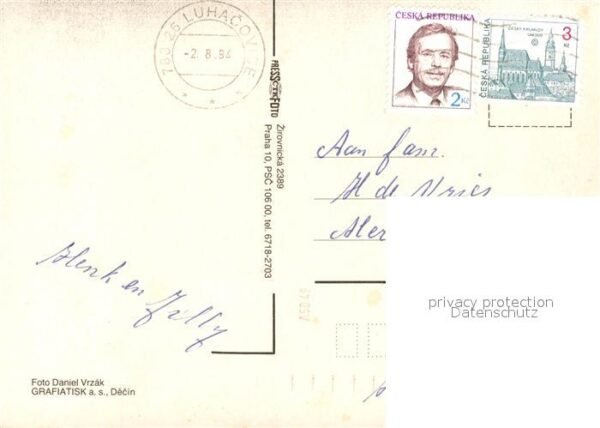 763 26 LUHAČOVICE
-2.8.94
ČESKÁ REPUBLIKA
2 Kč
ČESKÁ REPUBLIKA
ČESKÝ KRUMLOV
3 Kč
PRESSFOTO
Žirovnická 2389
Praha 10, PSČ 106 00, tel. 6718-2703
Aan fam.
H de Vries
Henk en Jilly
A5D 49
privacy protection
Datenschutz
Foto Daniel Vrzák
GRAFIATISK a. s., Děčín